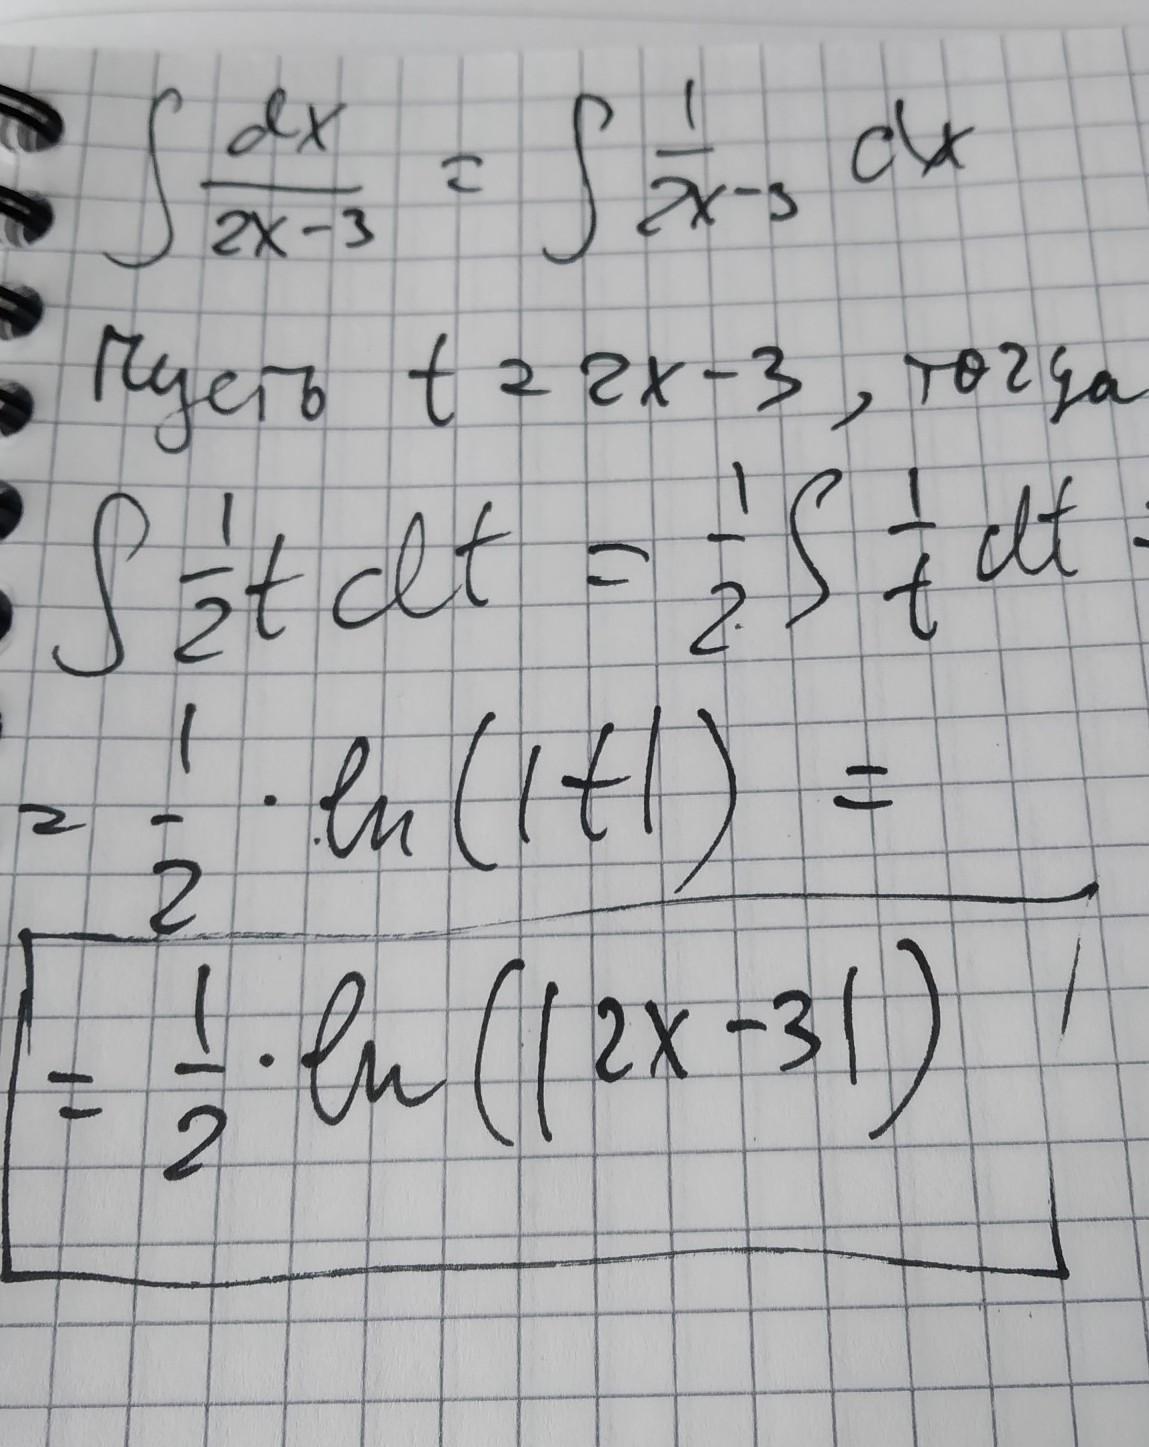 ∫ dx/(2x-3) = ∫ 1/(2x-3) dx
Пусть t = 2x-3, тогда
∫ 1/2 t dt = 1/2 ∫ 1/t dt =
= 1/2 · ln(|t|) =
= 1/2 · ln(|2x-3|)